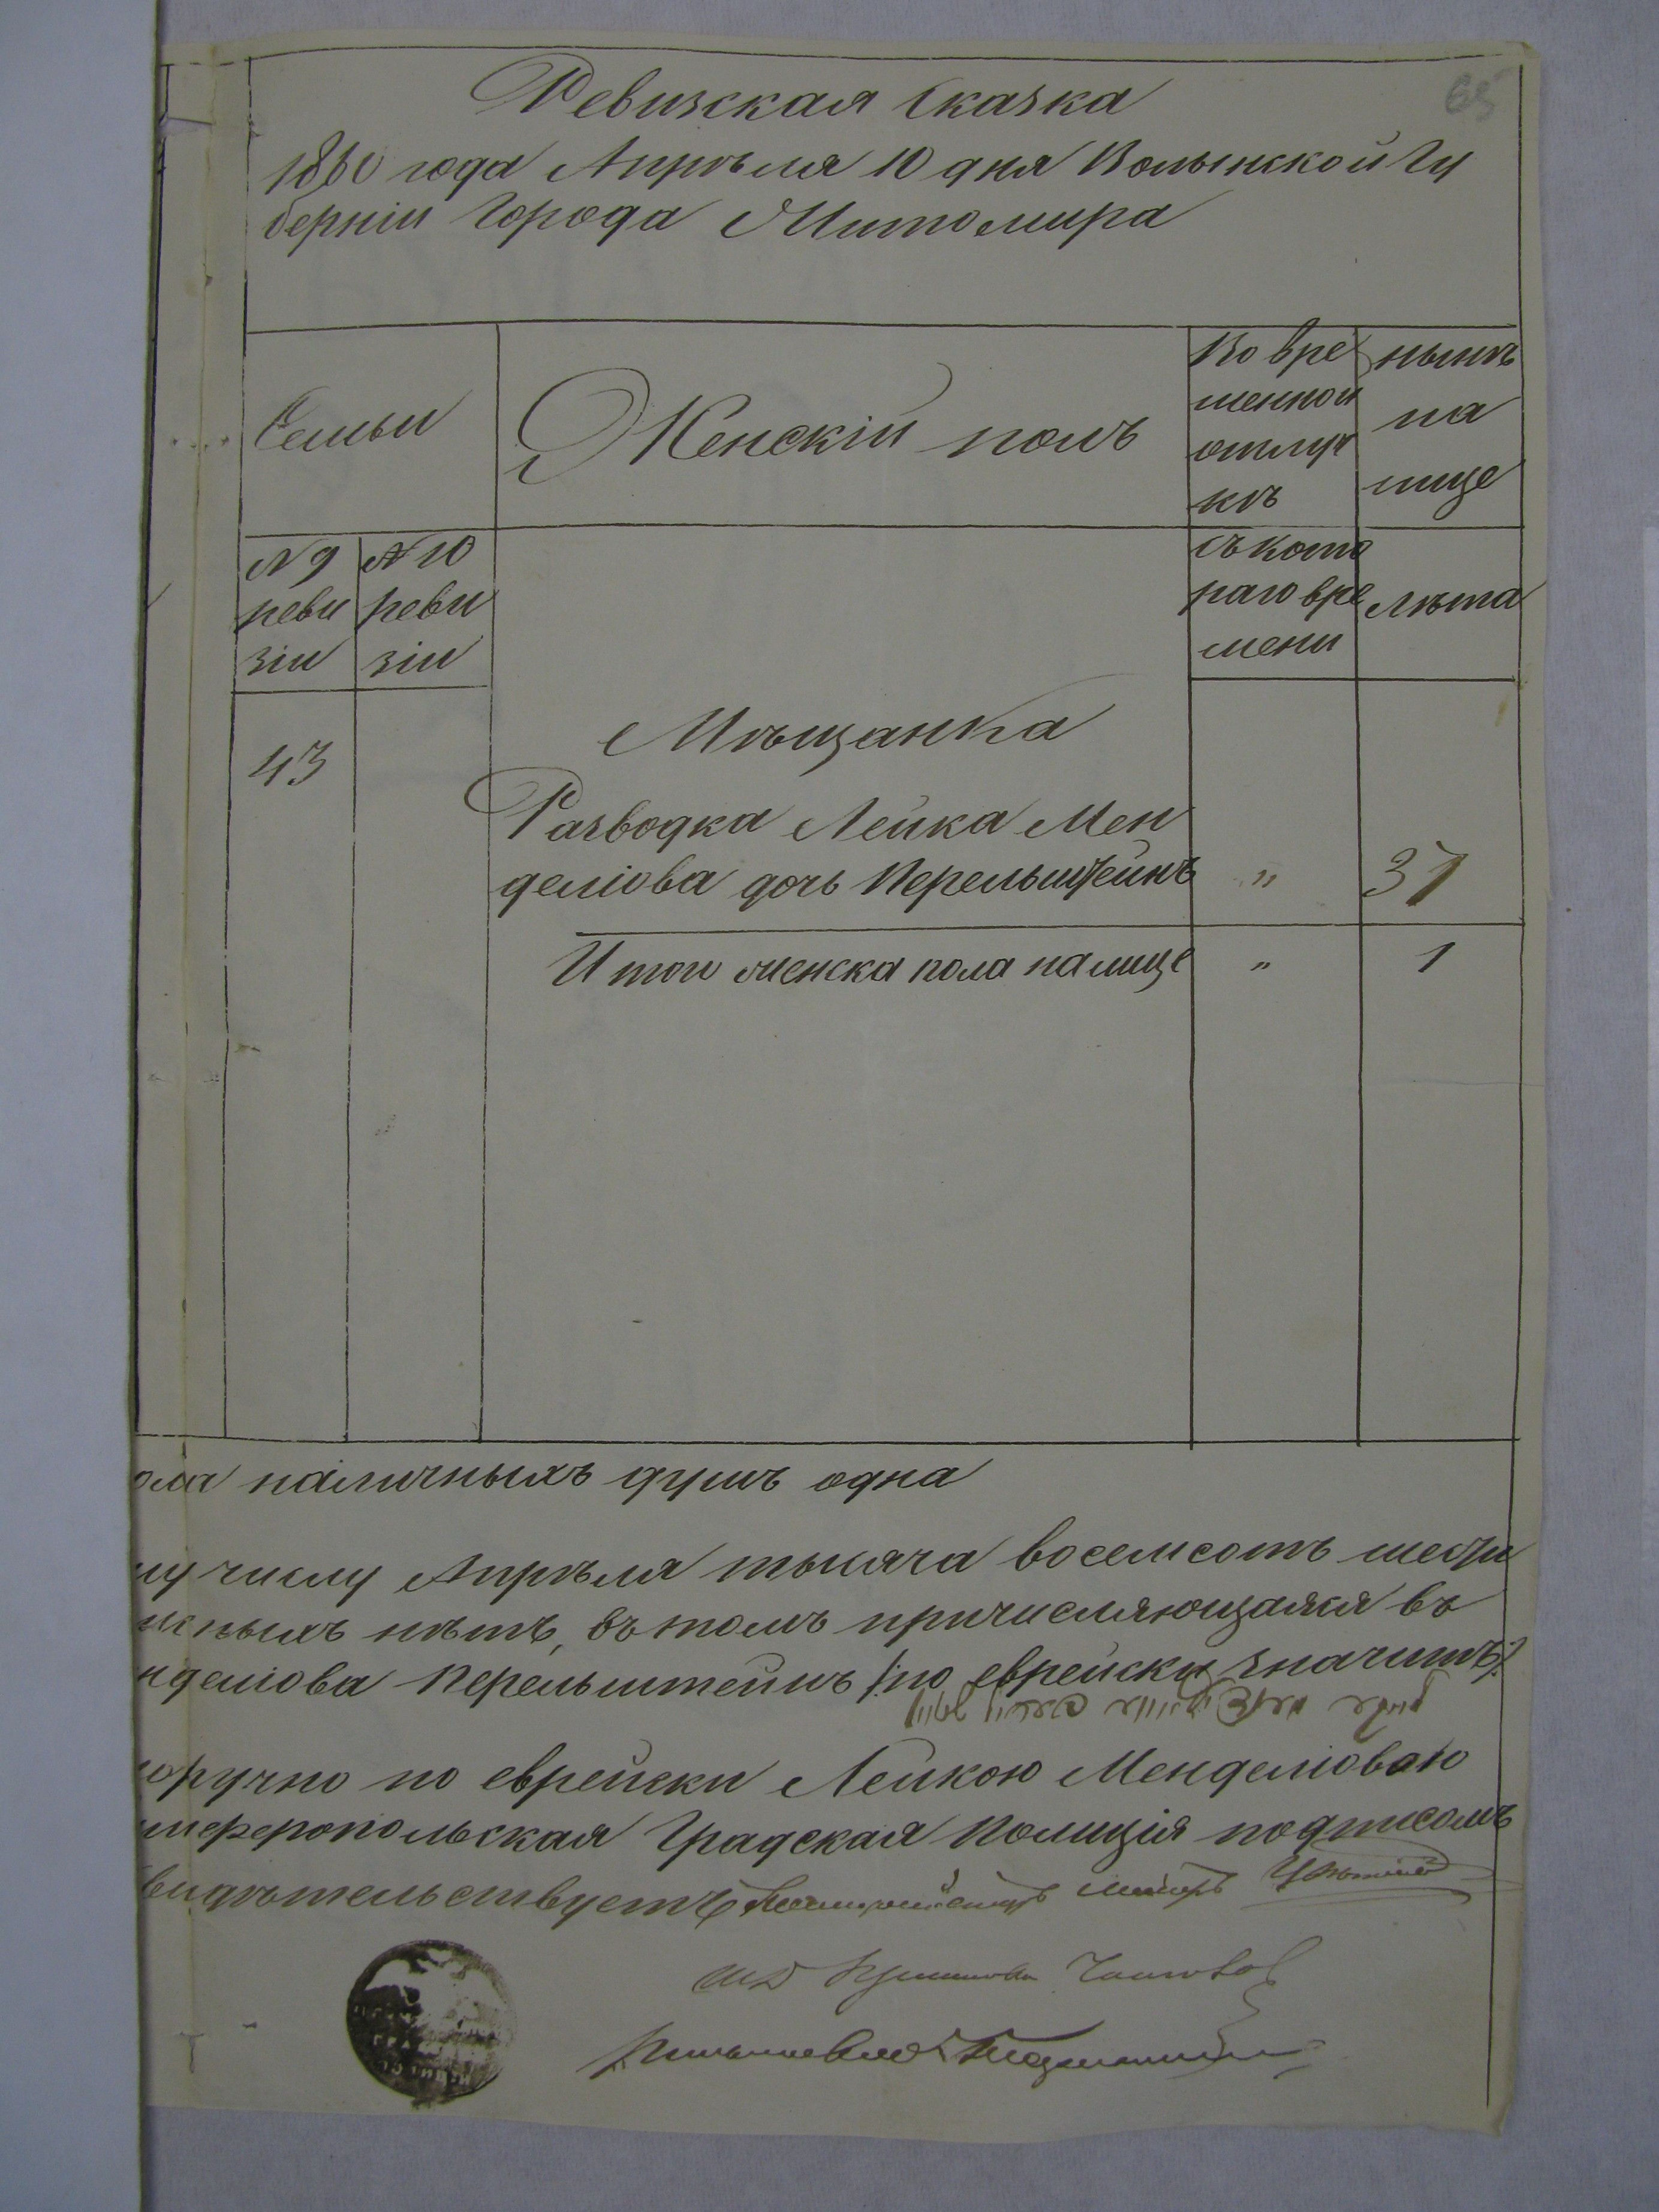 65
Ревизская Сказка
1860 года Апрѣля 10 дня Волынской Гу
берніи Города Житомира
Семьи
Женскій полъ
Во вре
менной
отлуч
кѣ
нынѣ
на
лице
№ 9
реви
зіи
№ 10
реви
зіи
съ кото
раго вре
мени
лѣта
43
Мѣщанка
Разводка Лейка Мен
деліова дочь Перельштейнъ " 37
Итого женска пола налице " 1
ола наличныхъ душъ одна
му числу Апрѣля тысяча восемсотъ шести
ныхъ нѣтъ, въ томъ причисляющаяся въ
нделіова Перельштейнъ /:по еврейски значитъ:/
оручно по еврейски Лейкою Менделіовою
имферопольская Градская Полиція подписомъ
видѣтельствуетъ